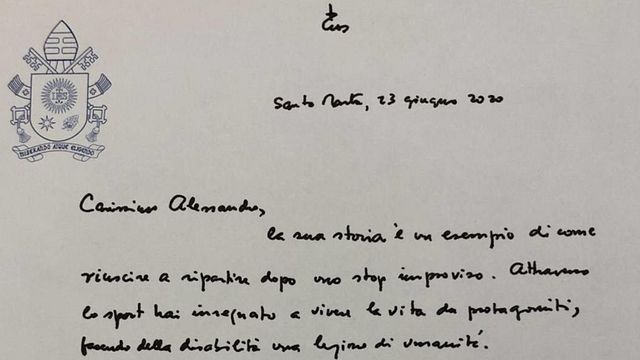 IHS
MISERANDO ATQUE ELIGENDO
Santa Marta, 23 giugno 2020
Carissimo Alessandro,
la sua storia è un esempio di come
riuscire a ripartire dopo uno stop improvviso. Attraverso
lo sport hai insegnato a vivere la vita da protagonisti,
facendo della disabilità una lezione di umanità.